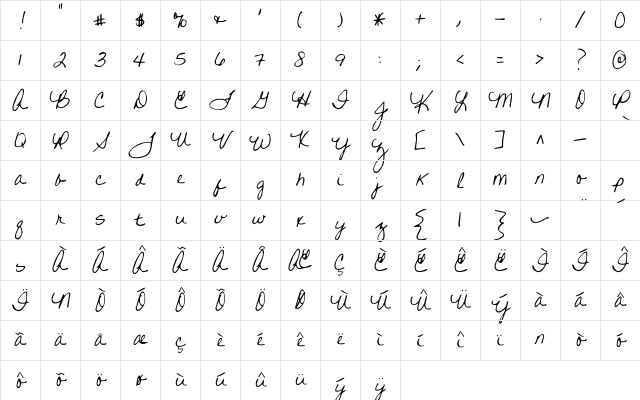 ! " # $ % & ' ( ) * + , - . / 0
1 2 3 4 5 6 7 8 9 : ; < = > ? @
A B C D E F G H I J K L M N O P
Q R S T U V W X Y Z [ \ ] ^ _
a b c d e f g h i j k l m n o p
q r s t u v w x y z { | } ~
s À Á Â Ã Ä Å Æ Ç È É Ê Ë Ì Í Î
Ï Ñ Ò Ó Ô Õ Ö Ø Ù Ú Û Ü Ý à á â
ã ä å æ ç è é ê ë ì í î ï n ò ó
ô õ ö ø ù ú û ü ý ÿ